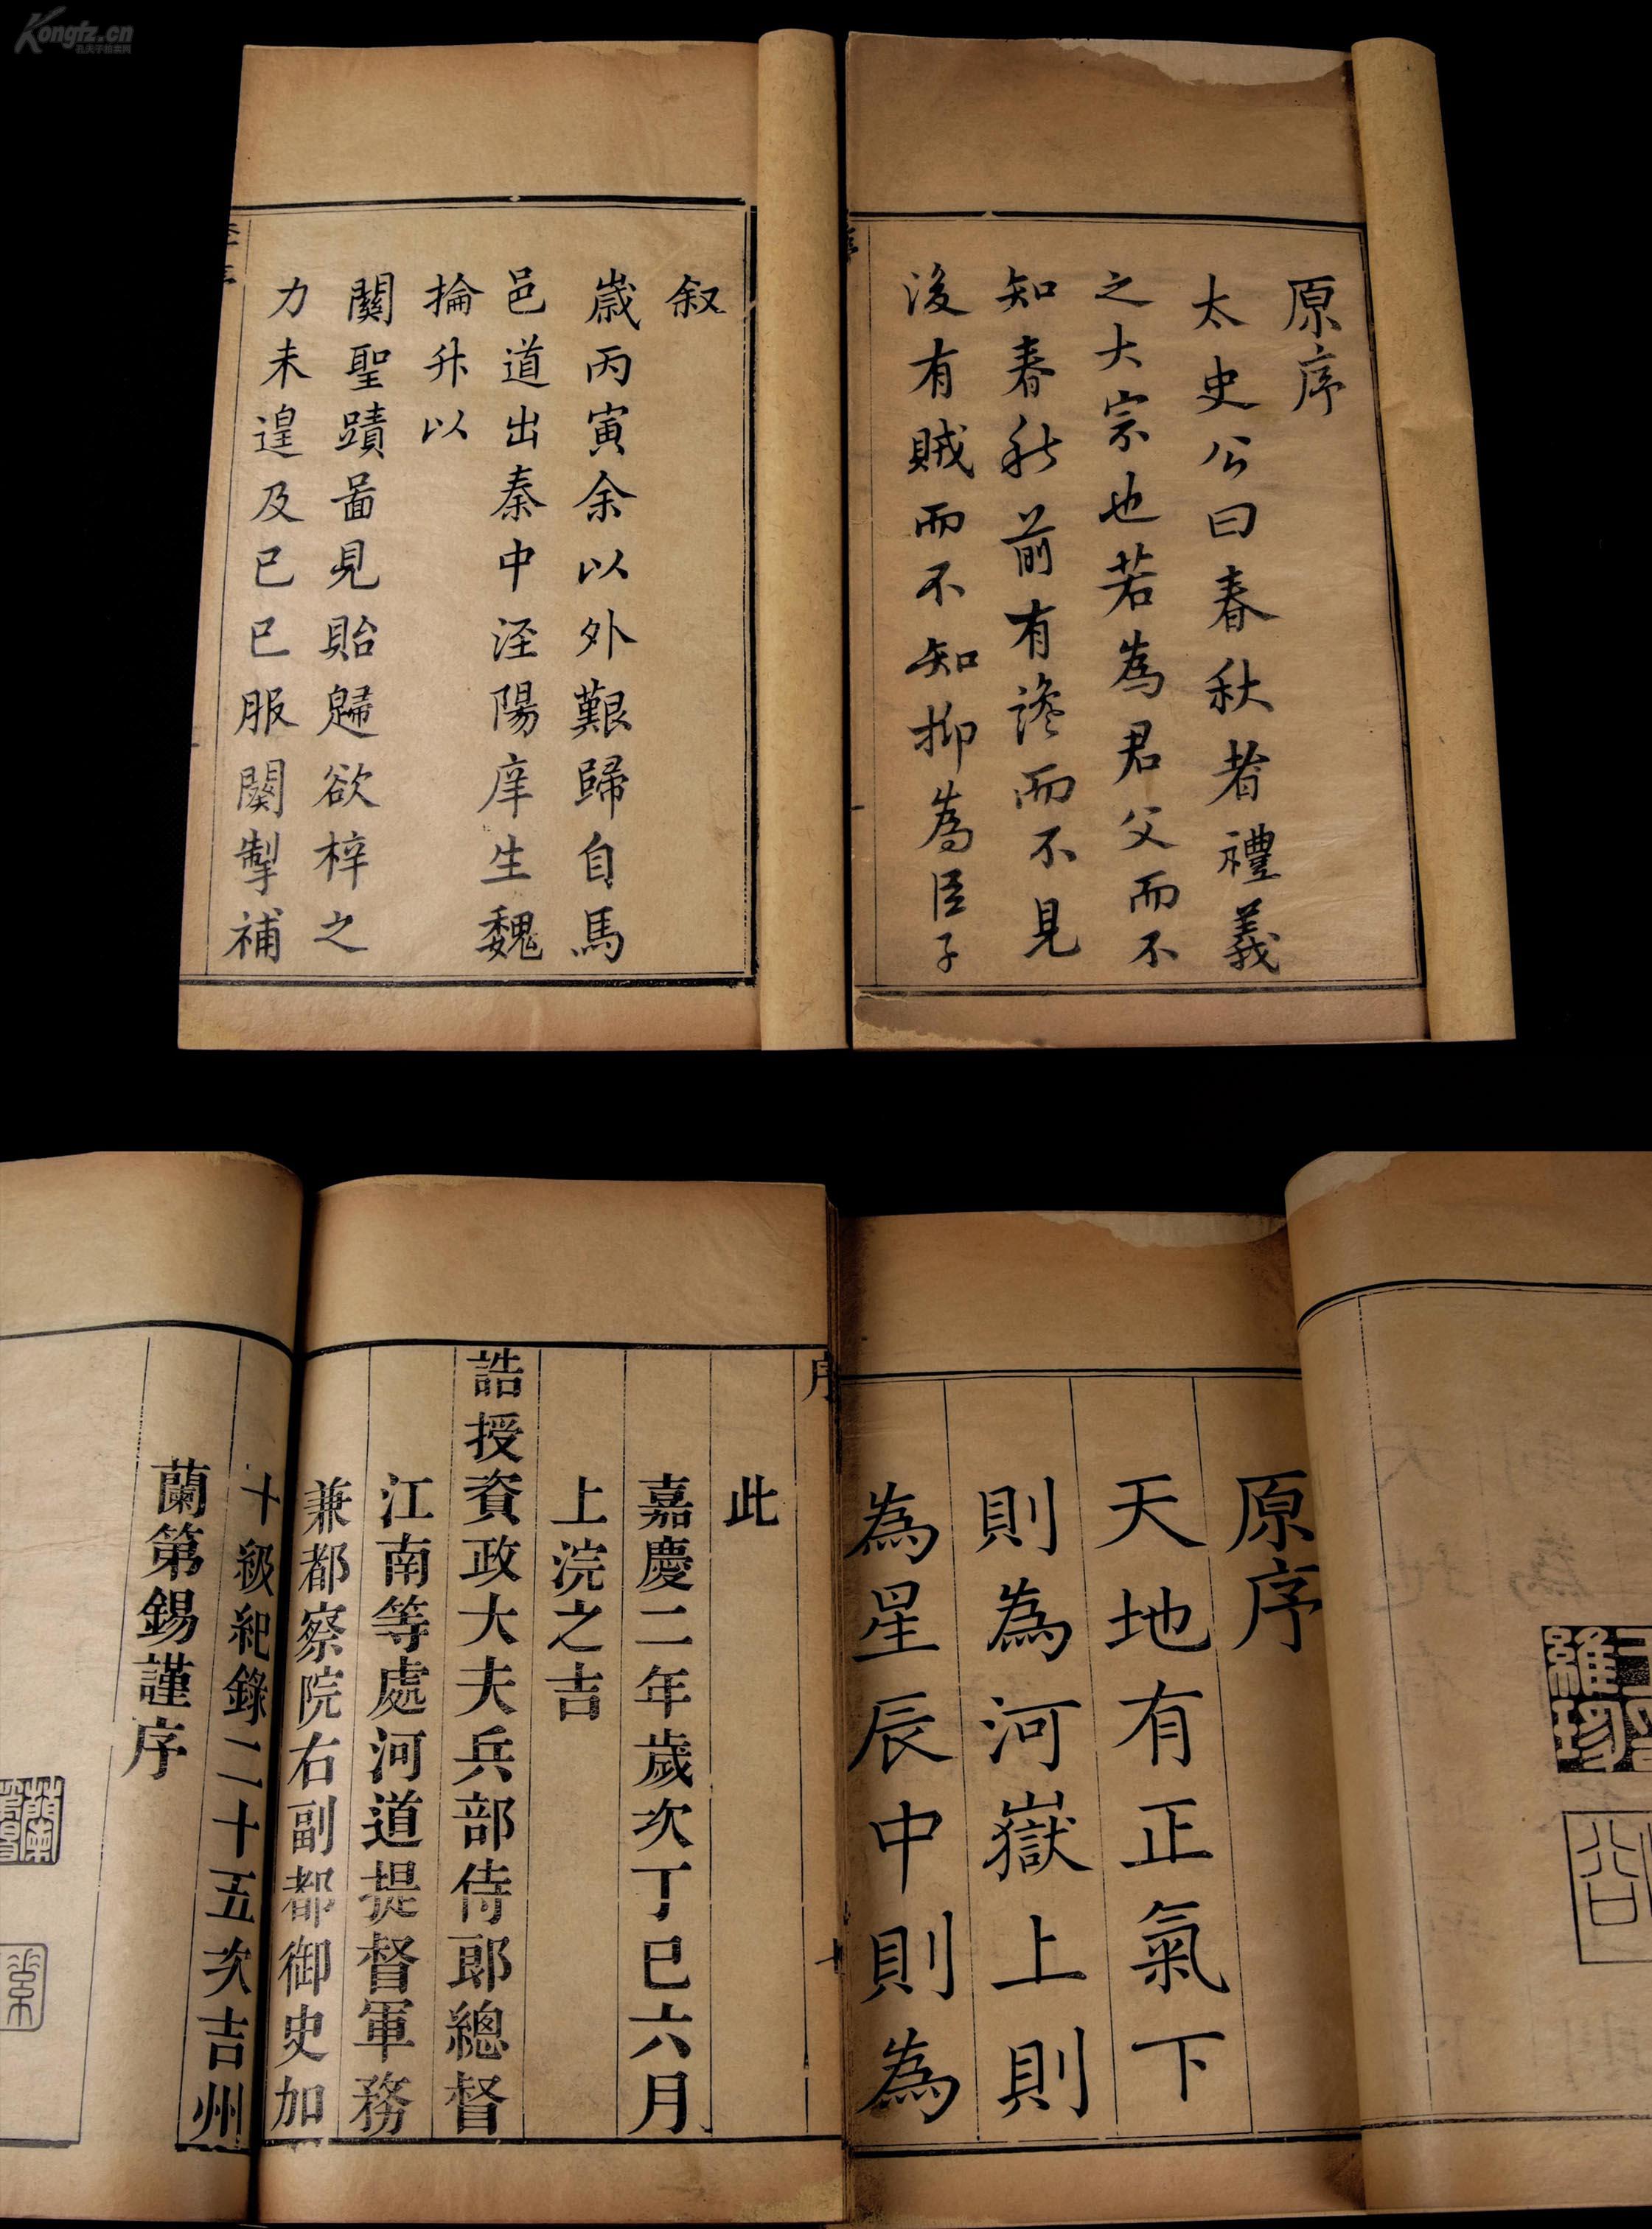 Kongfz.cn
孔夫子拍卖网
原序
太史公曰春秋者禮義
之大宗也若為君父而不
知春秋前有讒而不見
後有賊而不知抑為臣子
叙
嵗丙寅余以外艱歸自馬
邑道出秦中涇陽庠生魏
掄升以
關聖蹟啚見貽歸欲梓之
力未遑及己巳服闋掣補
原序
天地有正氣下
則為河嶽上則
為星辰中則為
序
十
此
嘉慶二年歲次丁巳六月
上浣之吉
誥授資政大夫兵部侍郎總督
江南等處河道提督軍務
兼都察院右副都御史加
十級紀錄二十五次吉州
蘭第錫謹序